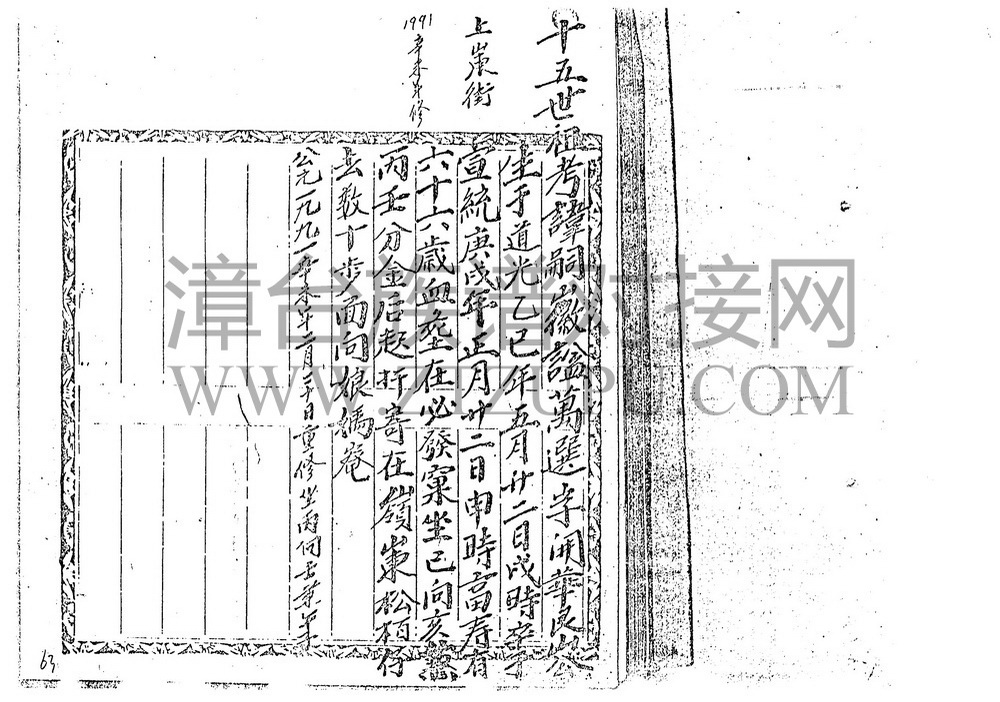 十五世祖考諱嗣徽諡萬選字開華艮岑
生于道光乙巳年五月廿二日戌時卒于
宣統庚戌年正月廿二日申時高寿有
六十六歲血塟在必發窠坐巳向亥兼
丙壬分金后起扦寄在嶺東松柏仔
去数十步面向娘媽庵
公元一九九一辛未年二月二十日重修坐丙向壬葉年
上崬街
1991辛未年修
63
漳台族谱对接网
WWW.ZTZUPU.COM